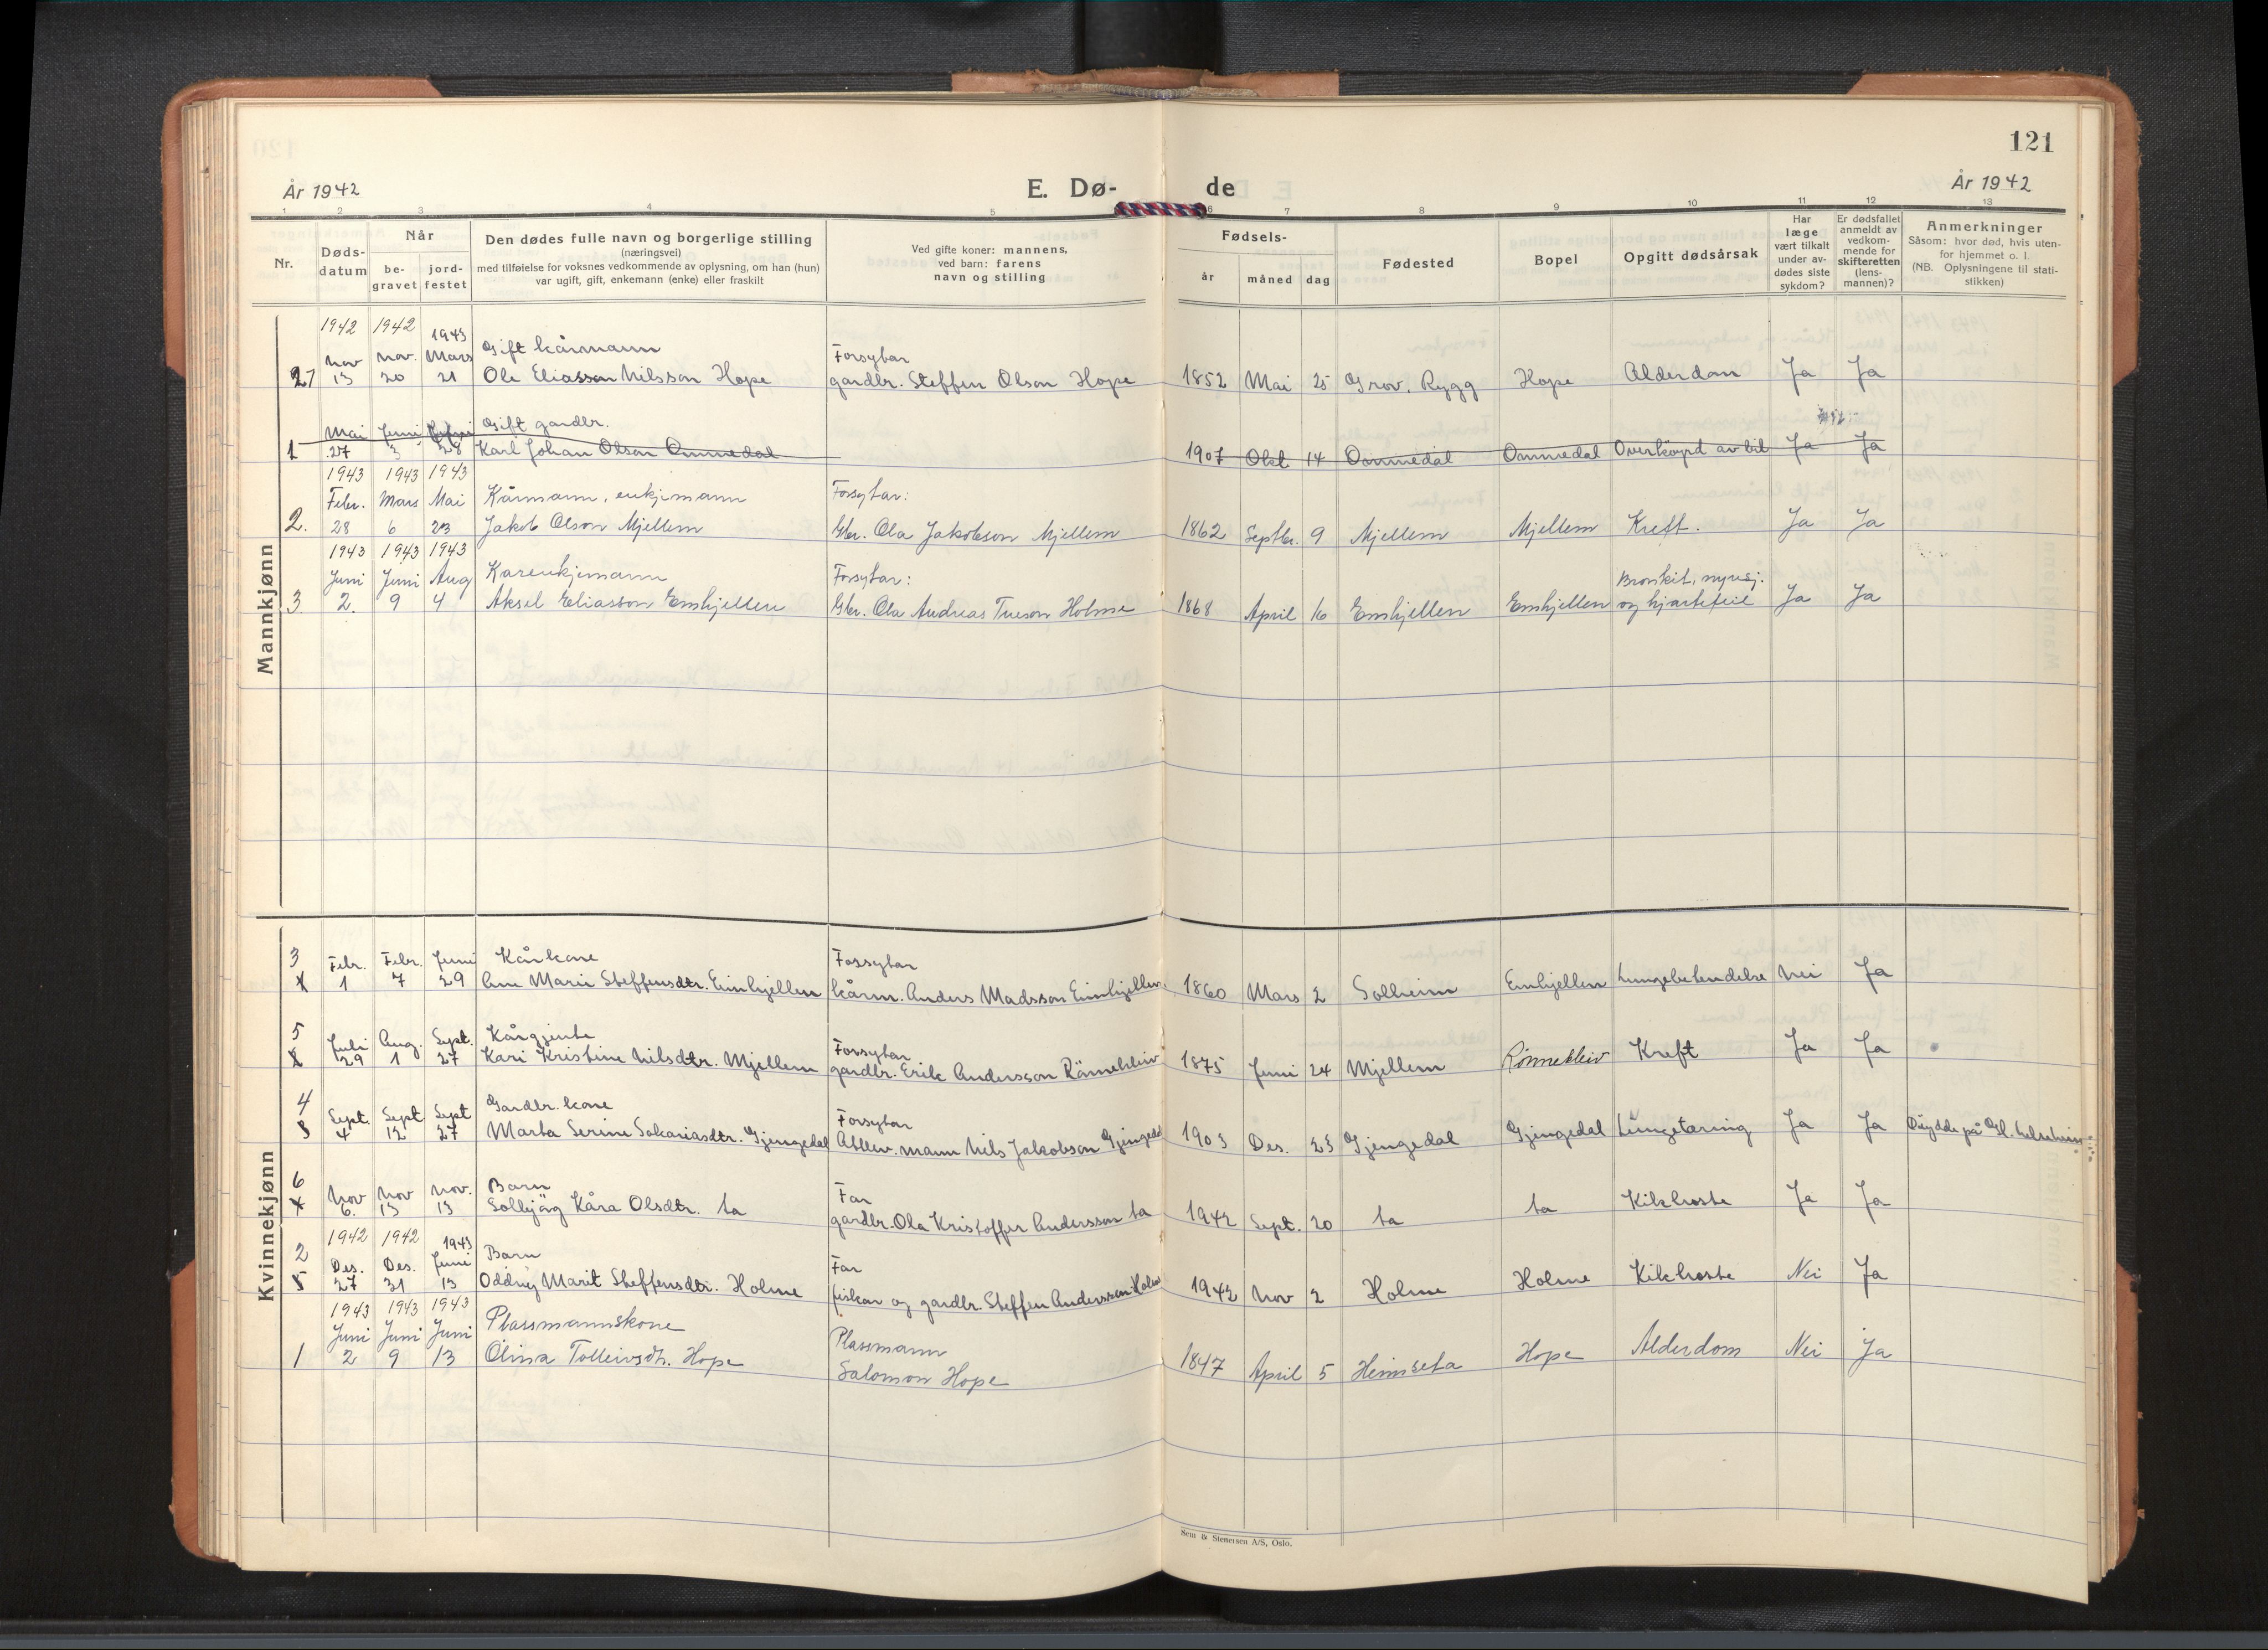 121
År 1942
E. Dø- de
År 1942
1 2 3 4 5 6 7 8 9 10 11 12 13
Nr.
Døds-
datum
Når
be-
gravet
jord-
festet
Den dødes fulle navn og borgerlige stilling
(næringsvei)
med tilføielse for voksnes vedkommende av oplysning, om han (hun)
var ugift, gift, enkemann (enke) eller fraskilt
Ved gifte koner: mannens,
ved barn: farens
navn og stilling
Fødsels-
år måned dag
Fødested
Bopel
Opgitt dødsårsak
Har
læge
vært tilkalt
under av-
dødes siste
sykdom?
Er dødsfallet
anmeldt av
vedkom-
mende for
skifteretten
(lens-
mannen)?
Anmerkninger
Såsom: hvor død, hvis uten-
for hjemmet o. l.
(NB. Oplysningene til stati-
stikken)
Mannkjønn
1942 1942 1943
Nov Nov. Mars Gift kårmann Forsytar
13 20 21 Ole Eliasson Nilsson Hope gardbr. Steffen Olson Hope 1852 Mai 25 Grov. Rygg Hope Alderdom Ja Ja
Mai Juni Gift gardbr.
1 27 3 28 Karl Johan Olson Ommedal 1907 Okt 14 Ommedal Ommedal Overkøyrd av bil Ja Ja
1943 1943 1943
Febr. Mars Mai Kårmann, enkjemann Forsytar:
2. 28 6 23 Jakob Olson Mjellem Gbr. Ola Jakobson Mjellem 1862 Septbr. 9 Mjellem Mjellem Kreft. Ja Ja
1943 1943 1943
Juni Juni Aug Karenkjemann Forsytar: Bronkit, nyresj.
3 2. 9 4 Aksel Eliasson Emhjellen Gbr. Ola Andreas Tueson Holme 1868 April 16 Emhjellen Emhjellen og hjartefeil Ja Ja
Kvinnekjønn
3 Febr. Febr. Juni Kårkone Forsytar
1 7 29 Ane Marie Steffensdtr. Eimhjellen kårm. Anders Madsson Eimhjellen 1860 Mars 2 Solheim Emhjellen Lungebetendelse Nei Ja
5 Juli Aug. Sept. Kårgjente Forsytar
29 1 27 Kari Kristine Nilsdtr. Mjellem gardbr. Erik Andersson Rönnekleiv 1875 Juni 24 Mjellem Rønnekleiv Kreft Ja Ja
4 Sept. Sept Sept Gardbr. kone Forsytar
3 4 12 27 Marta Serine Sakariasdtr. Gjengedal Attlev. mann Nils Jakobson Gjengedal 1903 Des. 23 Gjengedal Gjengedal Lungetæring Ja Ja Döydde på Gl. helseheim
6 Nov Nov Nov. Barn Far
4 6. 13 13 Solbjörg Kåra Olsdtr. Ta gardbr. Ola Kristoffer Andersson Ta 1942 Sept. 20 Ta Ta Kikhoste Ja Ja
1942 1942 1943
2 Des. Des. Juni Barn Far
5 27 31 13 Oddny Marit Steffensdtr. Holme fiskar og gardbr. Steffen Andersson Holme 1942 Nov 2 Holme Holme Kikhoste Nei Ja
1943 1943 1943
Juni Juni Juni Plassmannskone Plassmann
1 2 9 13 Olina Tolleivsdtr. Hope Salomon Hope 1847 April 5 Heimseta Hope Alderdom Nei Ja
Sem & Stenersen A/S, Oslo.